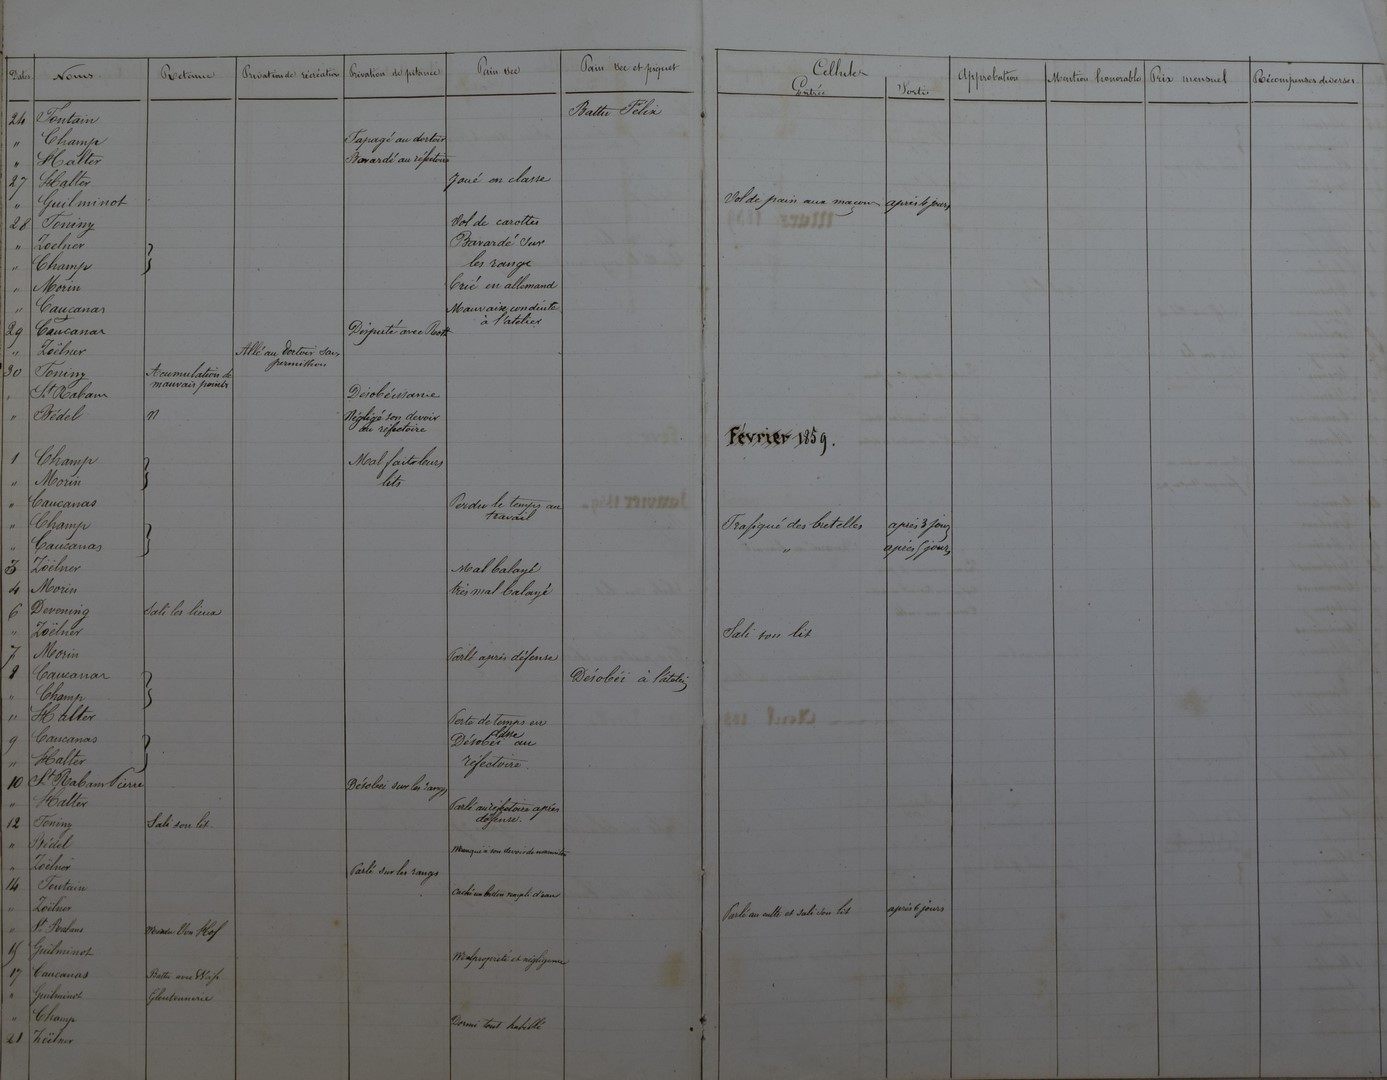 Dates Noms Retenue Privation de récréation Privation de pitance Pain sec Pain sec et piquet Cellule Entrée Sortie Approbation Mention honorable Prix mensuel Récompenses diverses
24 Fontain Battu Félix
" Champ Tapagé au dortoir
" Halter Bavardé au réfectoire
27 Halter Joué en classe
" Guilminot Vol de pain aux maçons après 4 jours
28 Toning Vol de carottes
" Zoelner } Bavardé sur
" Champ les rangs
" Morin Crié en allemand
" Caucanas Mauvaise conduite à l'atelier
29 Caucanas Disputé avec
" Zoëlner Allé au dortoir sans permission
30 Toning Acumulation de mauvais points
" St Rabam Désobéissance
" Bédel " Négligé son devoir au réfectoire
Février 1859.
1 Champ } Mal fait leurs
" Morin lits
" Caucanas Perdu le temps au travail
" Champ } Trafiqué des bretelles après 3 jours
" Caucanas " après 5 jours
3 Zoëlner Mal balayé
4 Morin très mal balayé
6 Devoning Sali les lieux
" Zoëlner Sali son lit
7 Morin Parlé après défense
8 Caucanas } Désobéi à l'atelier
" Champ
" Halter Perte de temps en classe
9 Caucanas } Désobéi au
" Halter réfectoire.
10 St Rabam Pierre Désobéi sur les rangs
" Halter Parlé au réfectoire après défense.
12 Toning Sali son lit.
" Bédel Manqué à son devoir de
" Zoëlner Parlé sur les rangs
14 Fontain Caché un
" Zoëlner Parlé au culte et sali son lit après 6 jours
" St Rabam Von Hof
15 Guilminot Malpropreté et négligence
17 Caucanas Battu avec
" Guilminot Gloutonnerie
" Champ Dormi tout habillé
21 Zoëlner